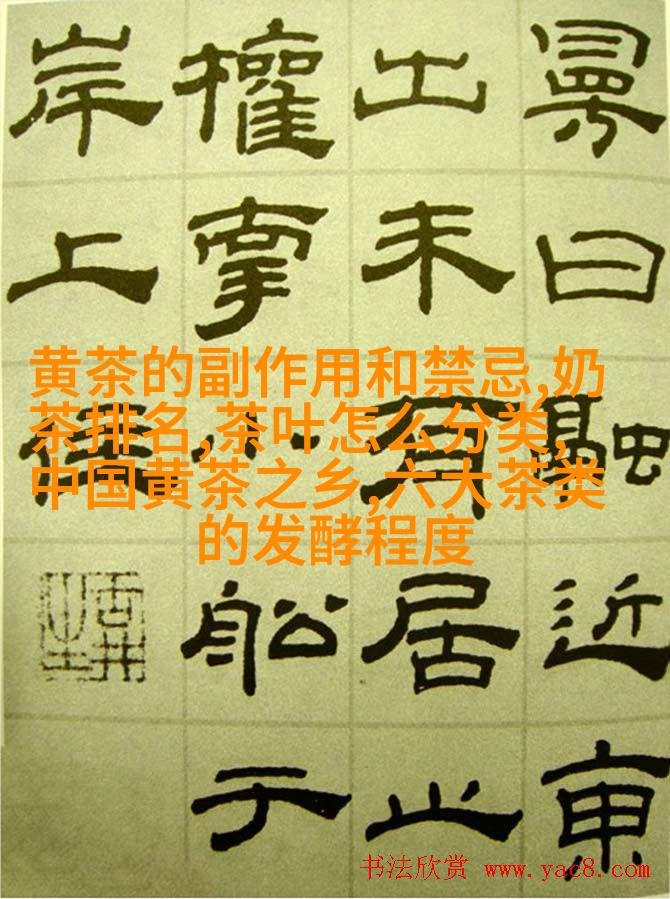 曰融近東
出未有居止
權牽小舩于
岸上
黄茶的副作用和禁忌,奶
茶排名,茶叶怎么分类,
中国黄茶之乡,六大茶类
的发酵程度
书法欣赏 www.yac8.com